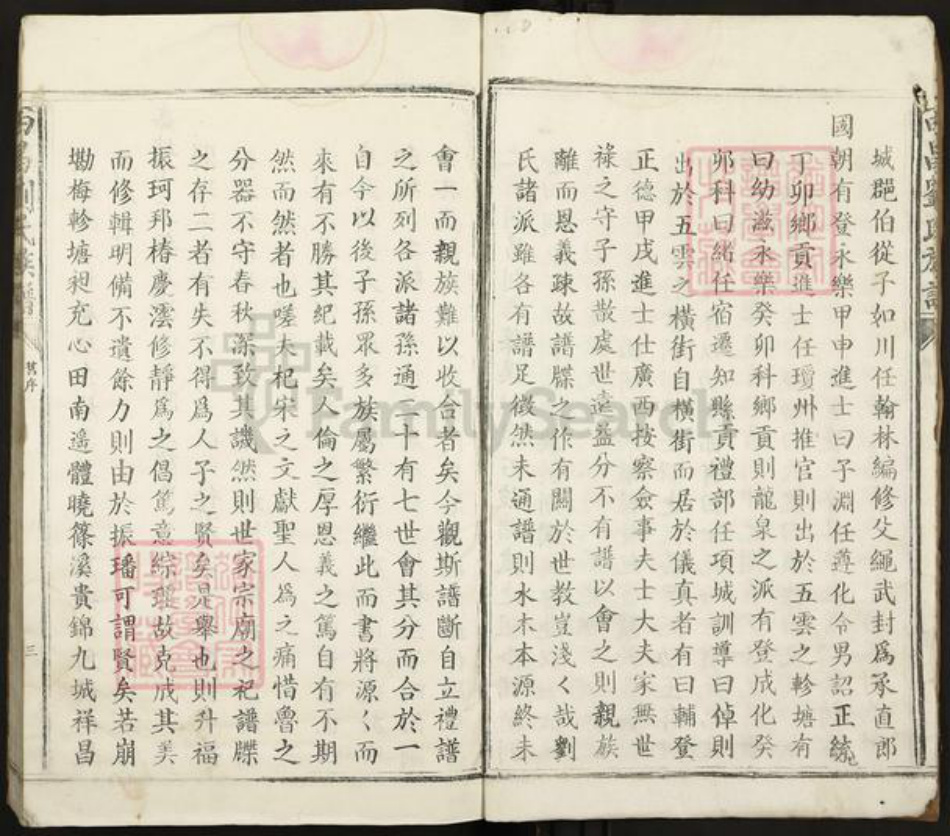 城䣛伯從子如川任翰林編修父繩武封爲承直郎
國朝有登永樂甲申進士曰子淵任遵化令男詔正統
丁卯鄉貢進士任瓊州推官則出於五雲之軫塘有
曰幼滋永樂癸卯科鄉貢則龍泉之派有登成化癸
卯科曰緒任宿遷知縣貢禮部任項城訓導曰倬則
出於五雲之橫街自橫街而居於儀真者有曰輔登
正德甲戌進士仕廣西按察僉事夫士大夫家無世
祿之守子孫散處世遠益分不有譜以會之則親族
離而恩義疎故譜牒之作有關於世教豈淺〱哉劉
氏諸派雖各有譜足徵然未通譜則水木本源終未
會一而親族難以收合者矣今觀斯譜斷自立禮譜
之所列各派諸孫通二十有七世會其分而合於一
自今以後子孫眾多族屬繁衍繼此而書將源〱而
來有不勝其紀載矣人倫之厚恩義之篤自有不期
然而然者也嗟夫杞宋之文獻聖人爲之痛惜魯之
分器不守春秋深致其譏然則世家宗廟之祀譜牒
之存二者有失不得爲人子之賢矣是舉也則升福
振珂邦椿慶澐修靜爲之倡篤意綜理故克成其美
而修輯明備不遺餘力則由於振璠可謂賢矣若崩
塘梅軫塘昶充心田南遥體曉篠溪貴錦九城祥昌
FamilySearch
舊序
三